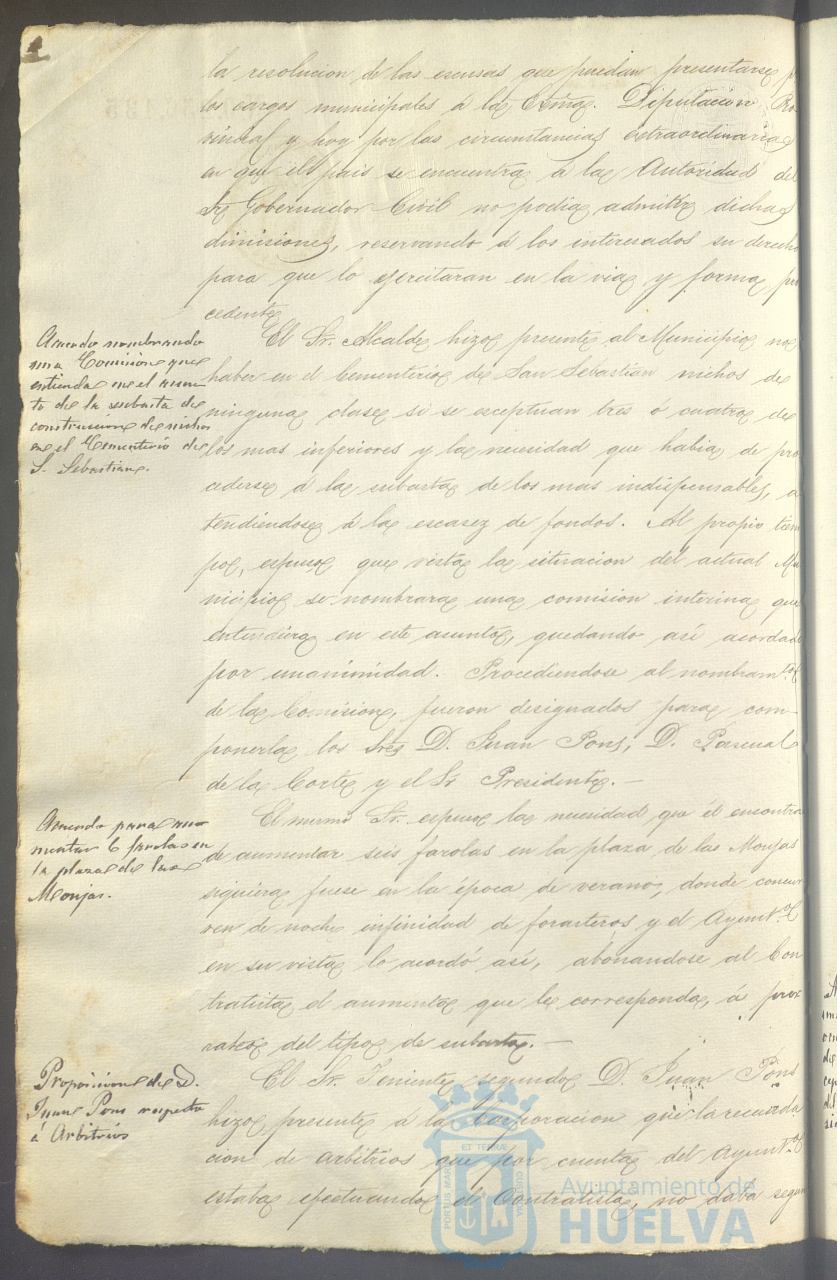 la resolucion de las escusas que puedan presentarse p
los cargos municipales á la Exma. Diputacion Pro
vincial y hoy por las circunstancias extraordinarias
en que el pais se encuentra á la Autoridad del
Sr. Gobernador Civil no podia admitir dichas
dimisiones, reservando á los interesados su derecho
para que lo ejercitaran en la via y forma pro
cedente
Acuerdo nombrando
una Comision que
entienda en el asun-
to de la subasta de
construccion de nichos
en el Cementerio de
S. Sebastian.
El Sr. Alcalde hizo presente al Municipio no
haber en el Cementerio de San Sebastian nichos de
ninguna clase si se esceptuan tres ó cuatro de
los mas inferiores y la necesidad que habia de pro
cederse á la subasta de los mas indispensables, a
tendiendose á la escasez de fondos. Al propio tiem
po, espuso que vista la situacion del actual Mu
nicipio se nombrara una comision interina que
entendiera en este asunto, quedando así acordado
por unanimidad. Procediendose al nombramto
de la Comision, fueron designados para com-
ponerla los Sres D. Juan Pons, D. Pascual
de la Corte y el Sr Presidente. -
Acuerdo para au
mentar 6 farolas en
la plaza de las
Monjas.
El mismo Sr. espuso la necesidad que él encontra
de aumentar seis farolas en la plaza de las Monjas
siquiera fuese en la época de verano, donde concur
ren de noche infinidad de forasteros y el Ayunto
en su vista lo acordó así, abonandose al Con
tratista el aumento que le corresponda, á pror
rateo del tipo de subasta. -
Proposicion de D.
Juan Pons respecto
á Arbitrios
El Sr. Teniente segundo D. Juan Pons
hizo presente á la Corporacion que la recauda
cion de arbitrios que por cuenta del Ayunto
estaba efectuando el Contratista, no daba segun
PORTUS MARIS
ET TERRAE
CUSTODIA
Ayuntamiento de
HUELVA